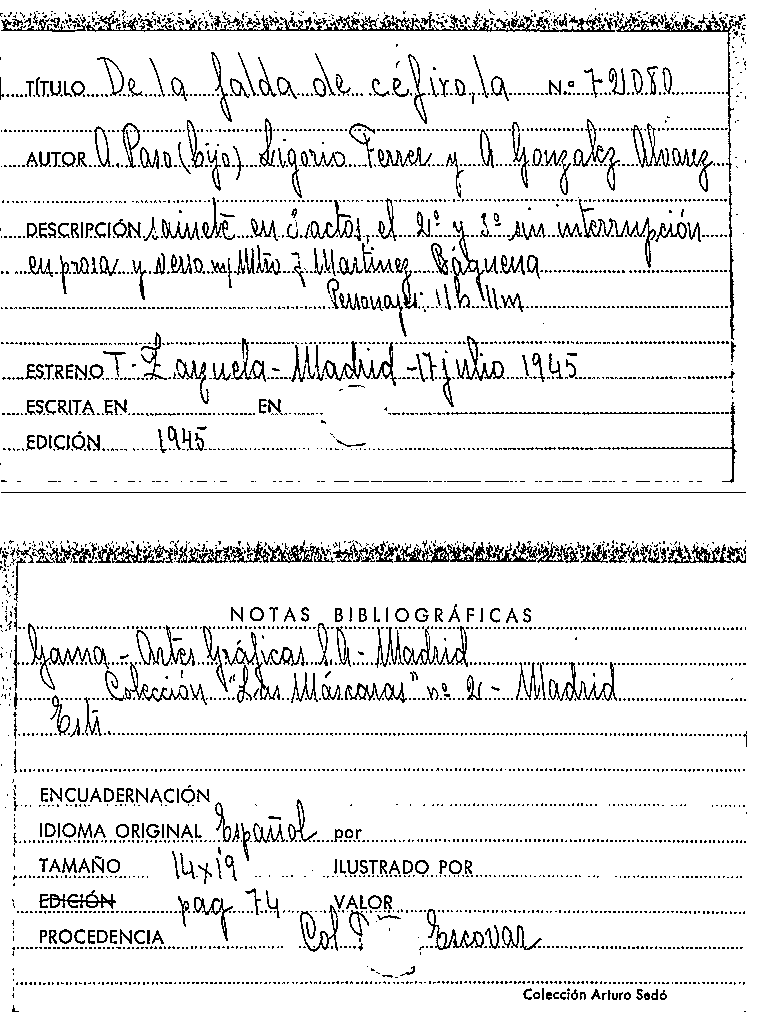 TÍTULO De la falda de céfiro, la N.º 7-21080
AUTOR A. Paso (hijo) Ligorio Ferrer y A Gonzalez Alvarez
DESCRIPCIÓN sainete en 3 actos, el 2º y 3º sin interrupción
en prosa y verso m/ Mtro J Martinez Báguena
Personajes: 11 h 11 m
ESTRENO T. Zarzuela - Madrid - 17 julio 1945
ESCRITA EN EN
EDICIÓN 1945
NOTAS BIBLIOGRÁFICAS
Gama - Artes Gráficas S.A - Madrid
Colección "Las Máscaras" nº 2 - Madrid
Estr.
ENCUADERNACIÓN
IDIOMA ORIGINAL Español por
TAMAÑO 14x19 ILUSTRADO POR
EDICIÓN pag 74 VALOR
PROCEDENCIA Col Escovar
Colección Arturo Sedó